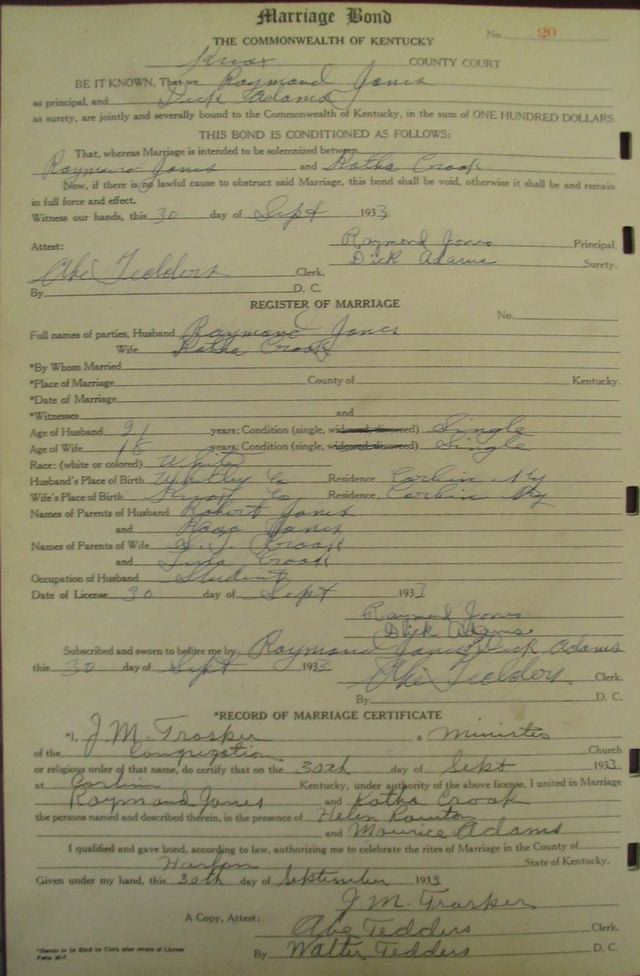 Marriage Bond
No. 20
THE COMMONWEALTH OF KENTUCKY
Knox COUNTY COURT
BE IT KNOWN, That we Raymond Jones
as principal, and Dick Adams
as surety, are jointly and severally bound to the Commonwealth of Kentucky, in the sum of ONE HUNDRED DOLLARS
THIS BOND IS CONDITIONED AS FOLLOWS:
That, whereas Marriage is intended to be solemnized between
Raymond Jones and Rotha Crook
Now, if there is no lawful cause to obstruct said Marriage, this bond shall be void, otherwise it shall be and remain
in full force and effect.
Witness our hands, this 30 day of Sept 1933
Raymond Jones Principal.
Attest: Dick Adams Surety.
Abe Tedders Clerk.
By D. C.
REGISTER OF MARRIAGE
No.
Full names of parties, Husband Raymond Jones
Wife Rotha Crook
*By Whom Married
*Place of Marriage County of Kentucky.
*Date of Marriage
*Witnesses and
Age of Husband 21 years; Condition (single, widowed, divorced) Single
Age of Wife 18 years; Condition (single, widowed, divorced) Single
Race: (white or colored) White
Husband's Place of Birth Whitley Co Residence Corbin Ky
Wife's Place of Birth Knox Co Residence Corbin Ky
Names of Parents of Husband Robert Jones
and Jones
Names of Parents of Wife Crook
and Crook
Occupation of Husband Student
Date of License 30 day of Sept 1933
Raymond Jones
Dick Adams
Subscribed and sworn to before me by Raymond Jones Dick Adams
this 30 day of Sept 1933 Abe Tedders Clerk.
By D. C.
*RECORD OF MARRIAGE CERTIFICATE
*I, J. M. Trosper a Minister
of the Congregation Church
or religious order of that name, do certify that on the 30th day of Sept 1933
at Corbin Kentucky, under authority of the above license, I united in Marriage
Raymond Jones and Rotha Crook
the persons named and described therein, in the presence of Helen
and Maurice Adams
I qualified and gave bond, according to law, authorizing me to celebrate the rites of Marriage in the County of
Harlan State of Kentucky.
Given under my hand, this 30th day of September 1933
J. M. Trosper
A Copy, Attest: Abe Tedders Clerk.
By Walter Tedders D. C.
*Blanks to be filled by Clerk after return of License